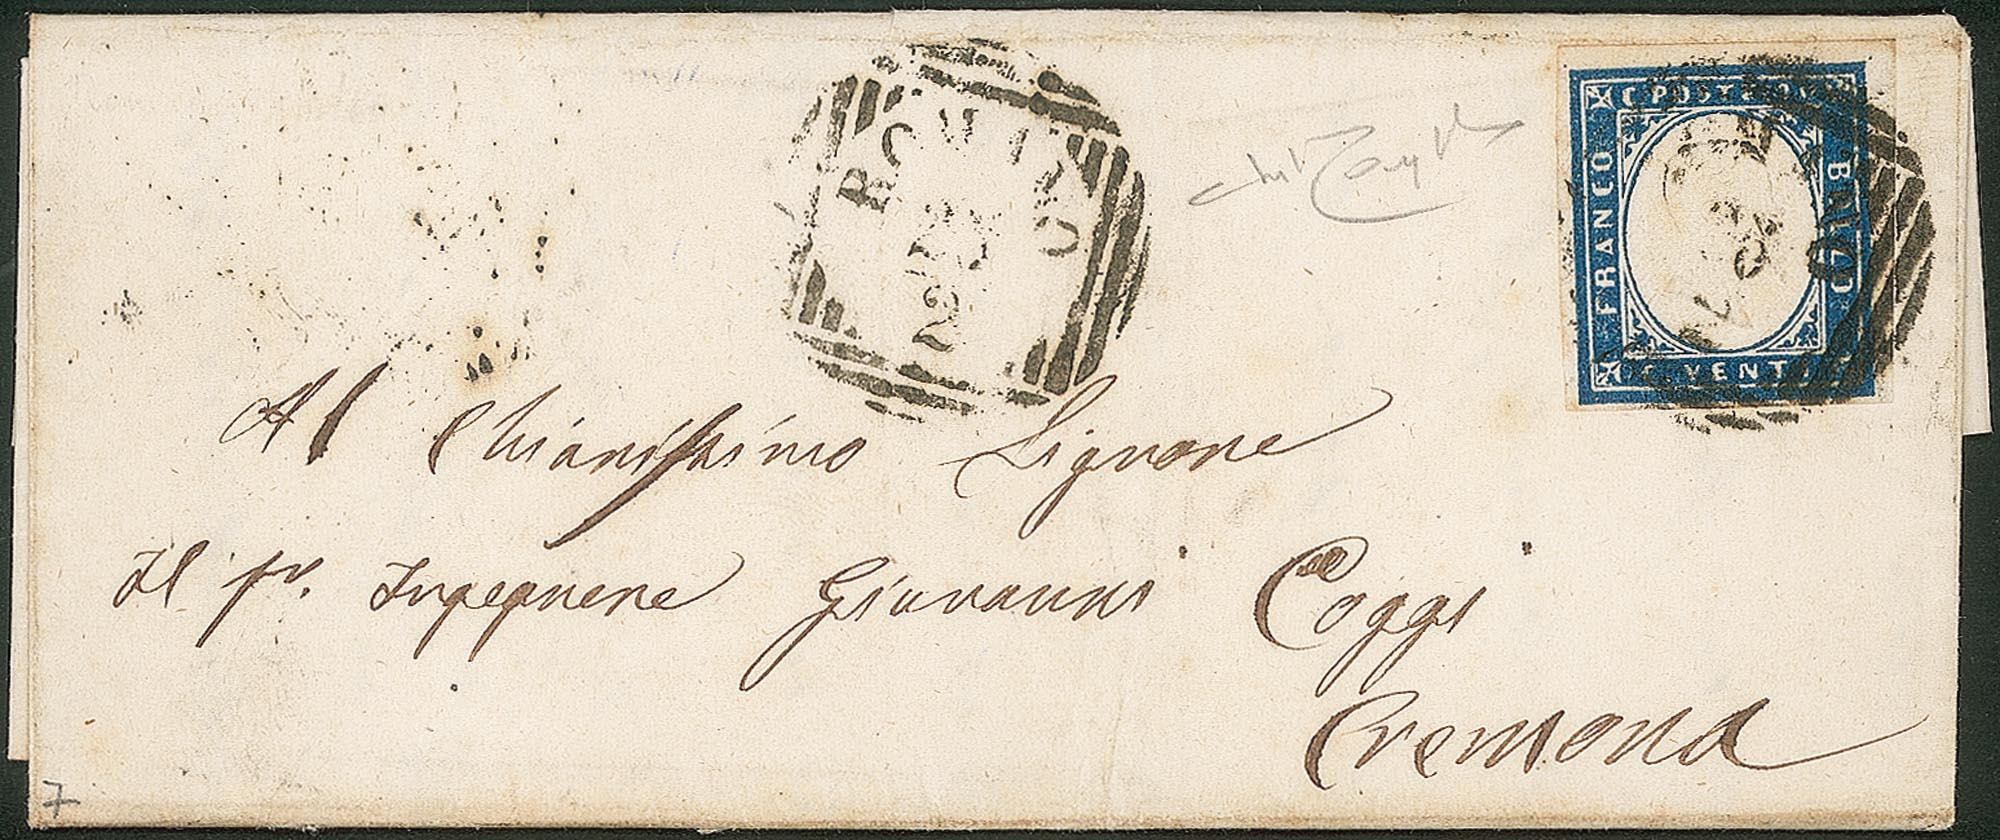 C POSTE 20
FRANCO
BOLLO
C. VENTI
Al Chiarissimo Signore
Il pr. Ingegnere Giovanni Coggi
Cremona
7